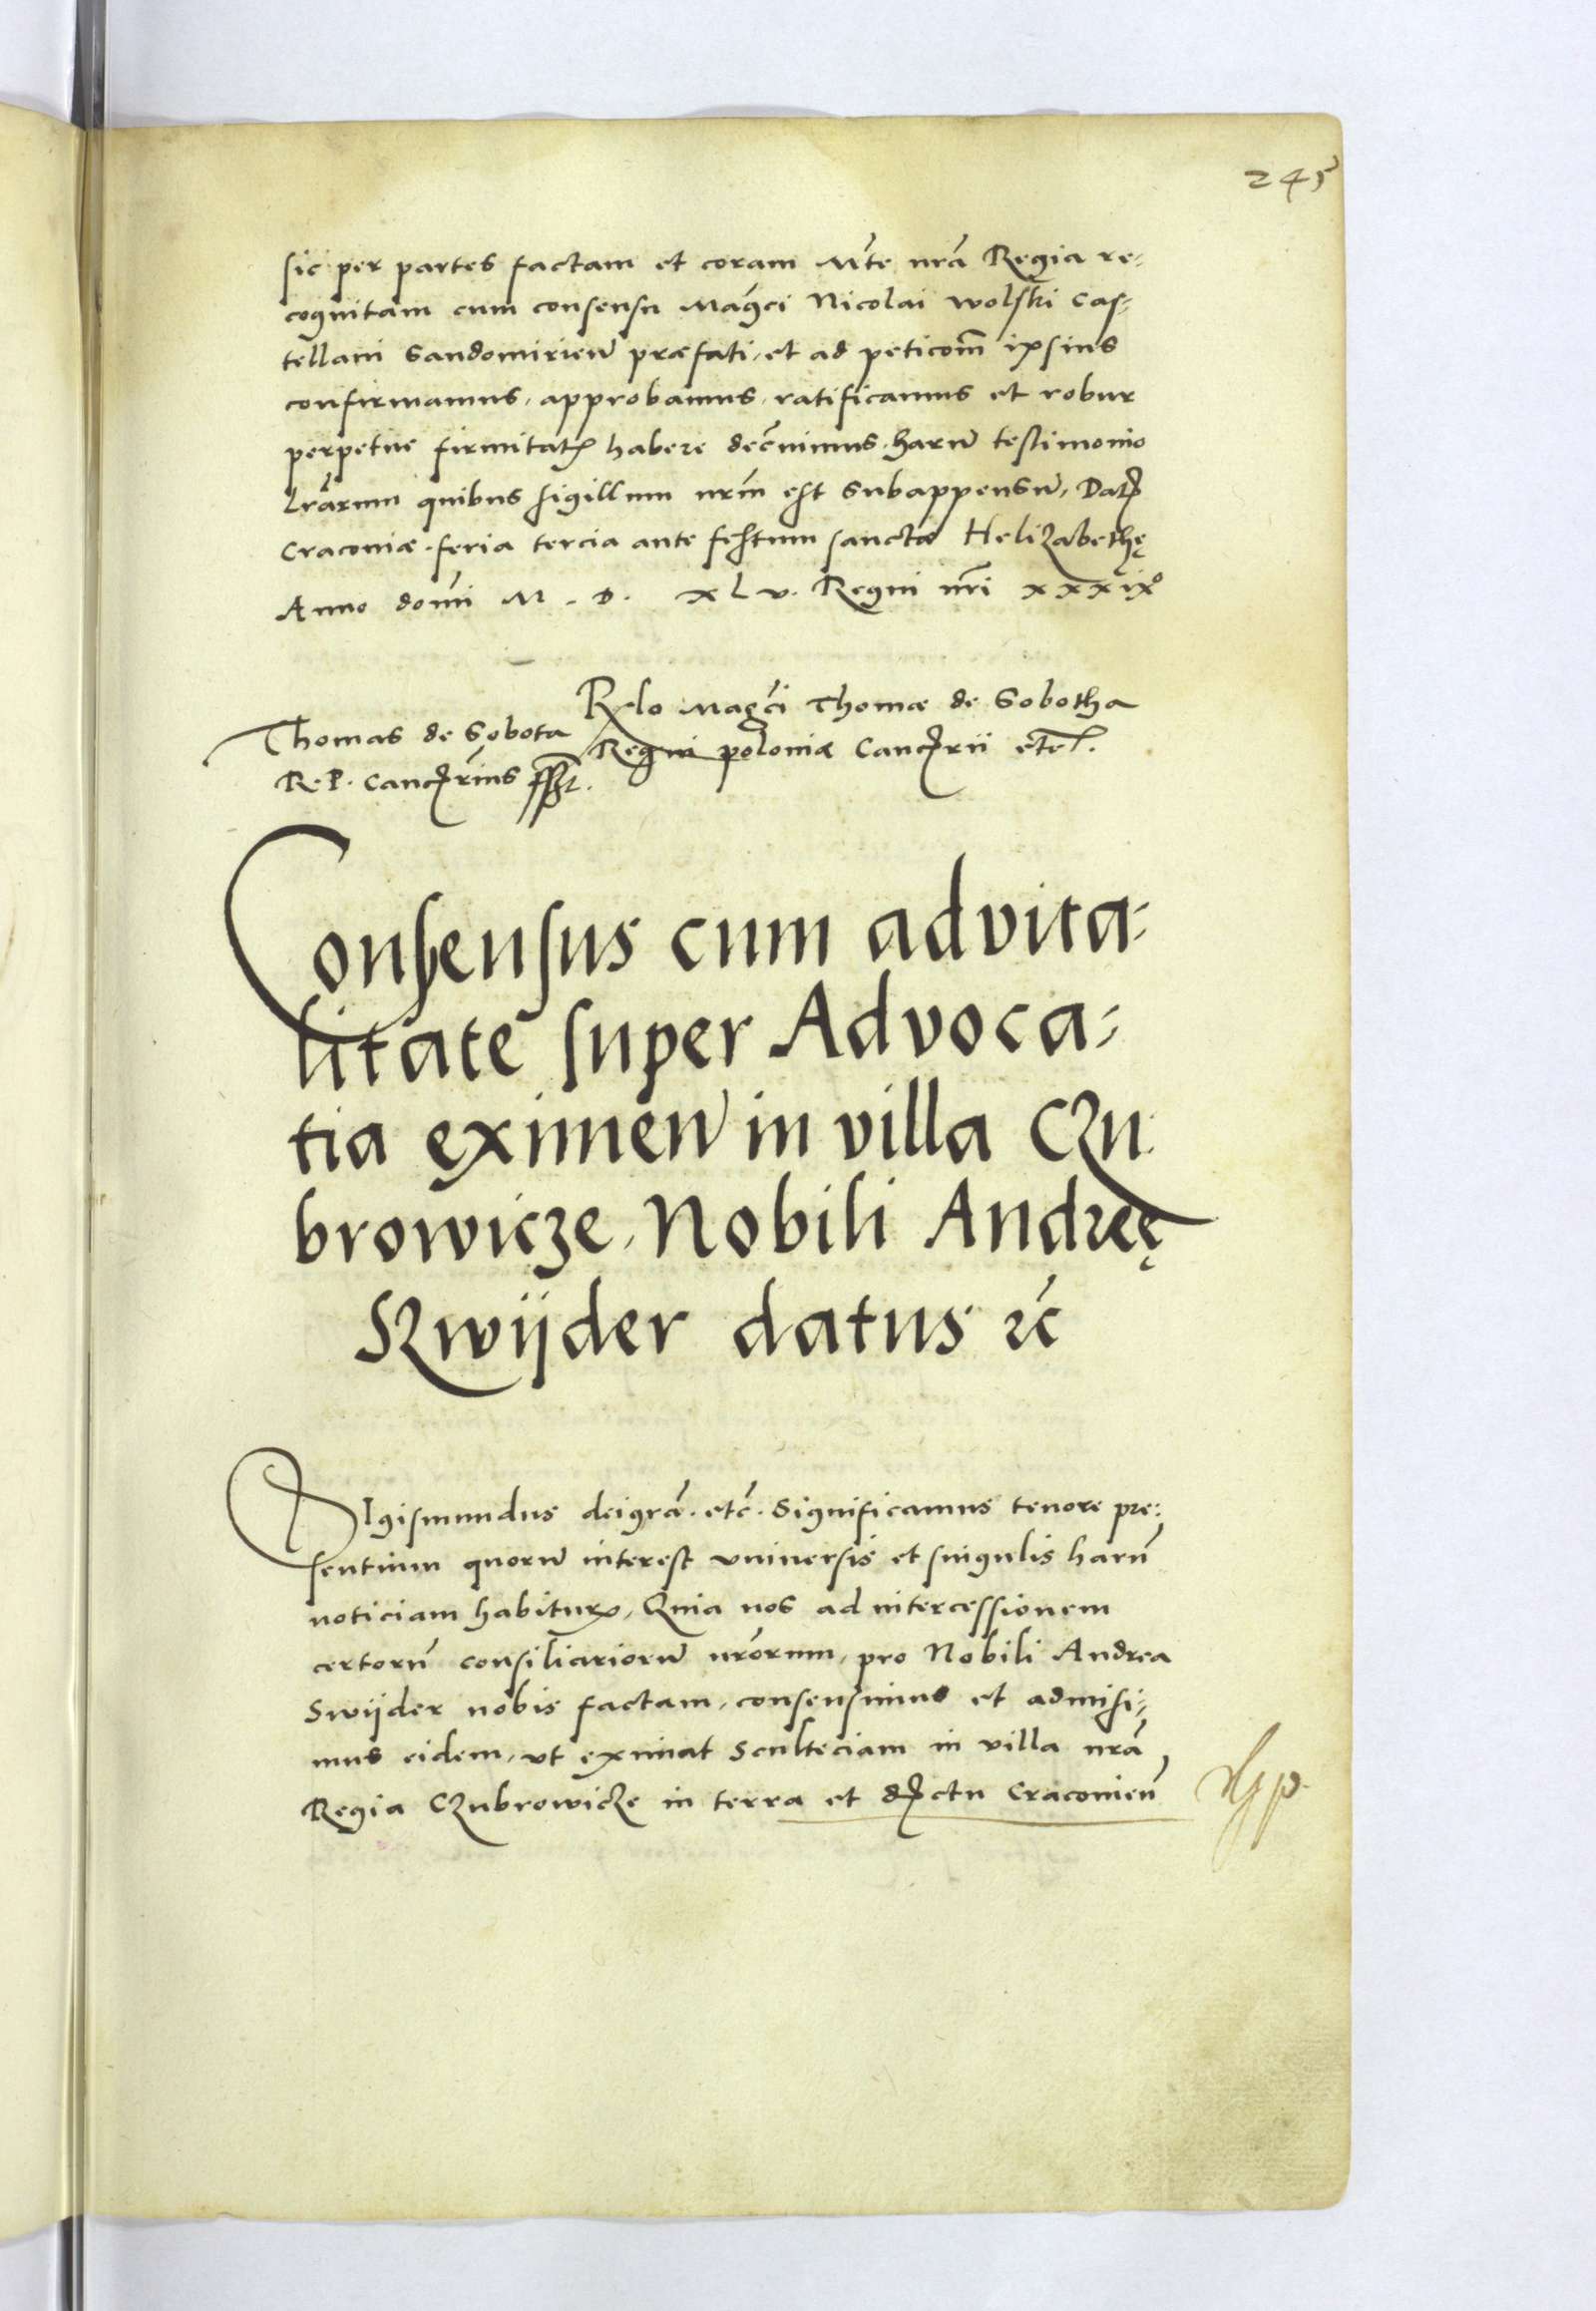 245
sic per partes factam et coram Mte nrā Regia re-
cognitam cum consensu Magci Nicolai Wolski Cas-
tellani Sandomirien præfati, et ad peticom̄ ipsius
confirmamus, approbamus, ratificamus et robur
perpetue firmitatꝭ habere decīnimus. harum testimonio
Lrārum quibus sigillum nrm̄ est subappensum, Datꝭ
Craconiæ. feria tercia ante festum sanctæ Helizabethę
Anno domi M. D. XLV. Regni nrī xxxixº
Relo Magci Thomæ de Sobotha
Regni poloniæ Cancꝭrii etc.
Thomas de Sobota
R. P. Cancꝭrius sst.
Consensus cum advita-
litate super Advoca-
tia eximen in villa Czu
browicze, Nobili Andreę
Szwijder datus rc̄
SIgismundus dei grā. etc̄. Significamus tenore pre-
sentium quorum interest universis et singulis harum
noticiam habiturꝭ, Quia nos ad intercessionem
certorum consiliariorum nrōrum, pro Nobili Andrea
Swijder nobis factam, consensimus et admisi-
mus eidem, ut eximat Sculteciam in villa nrā
Regia Czubrowicze in terra et dꝭctu Craconien